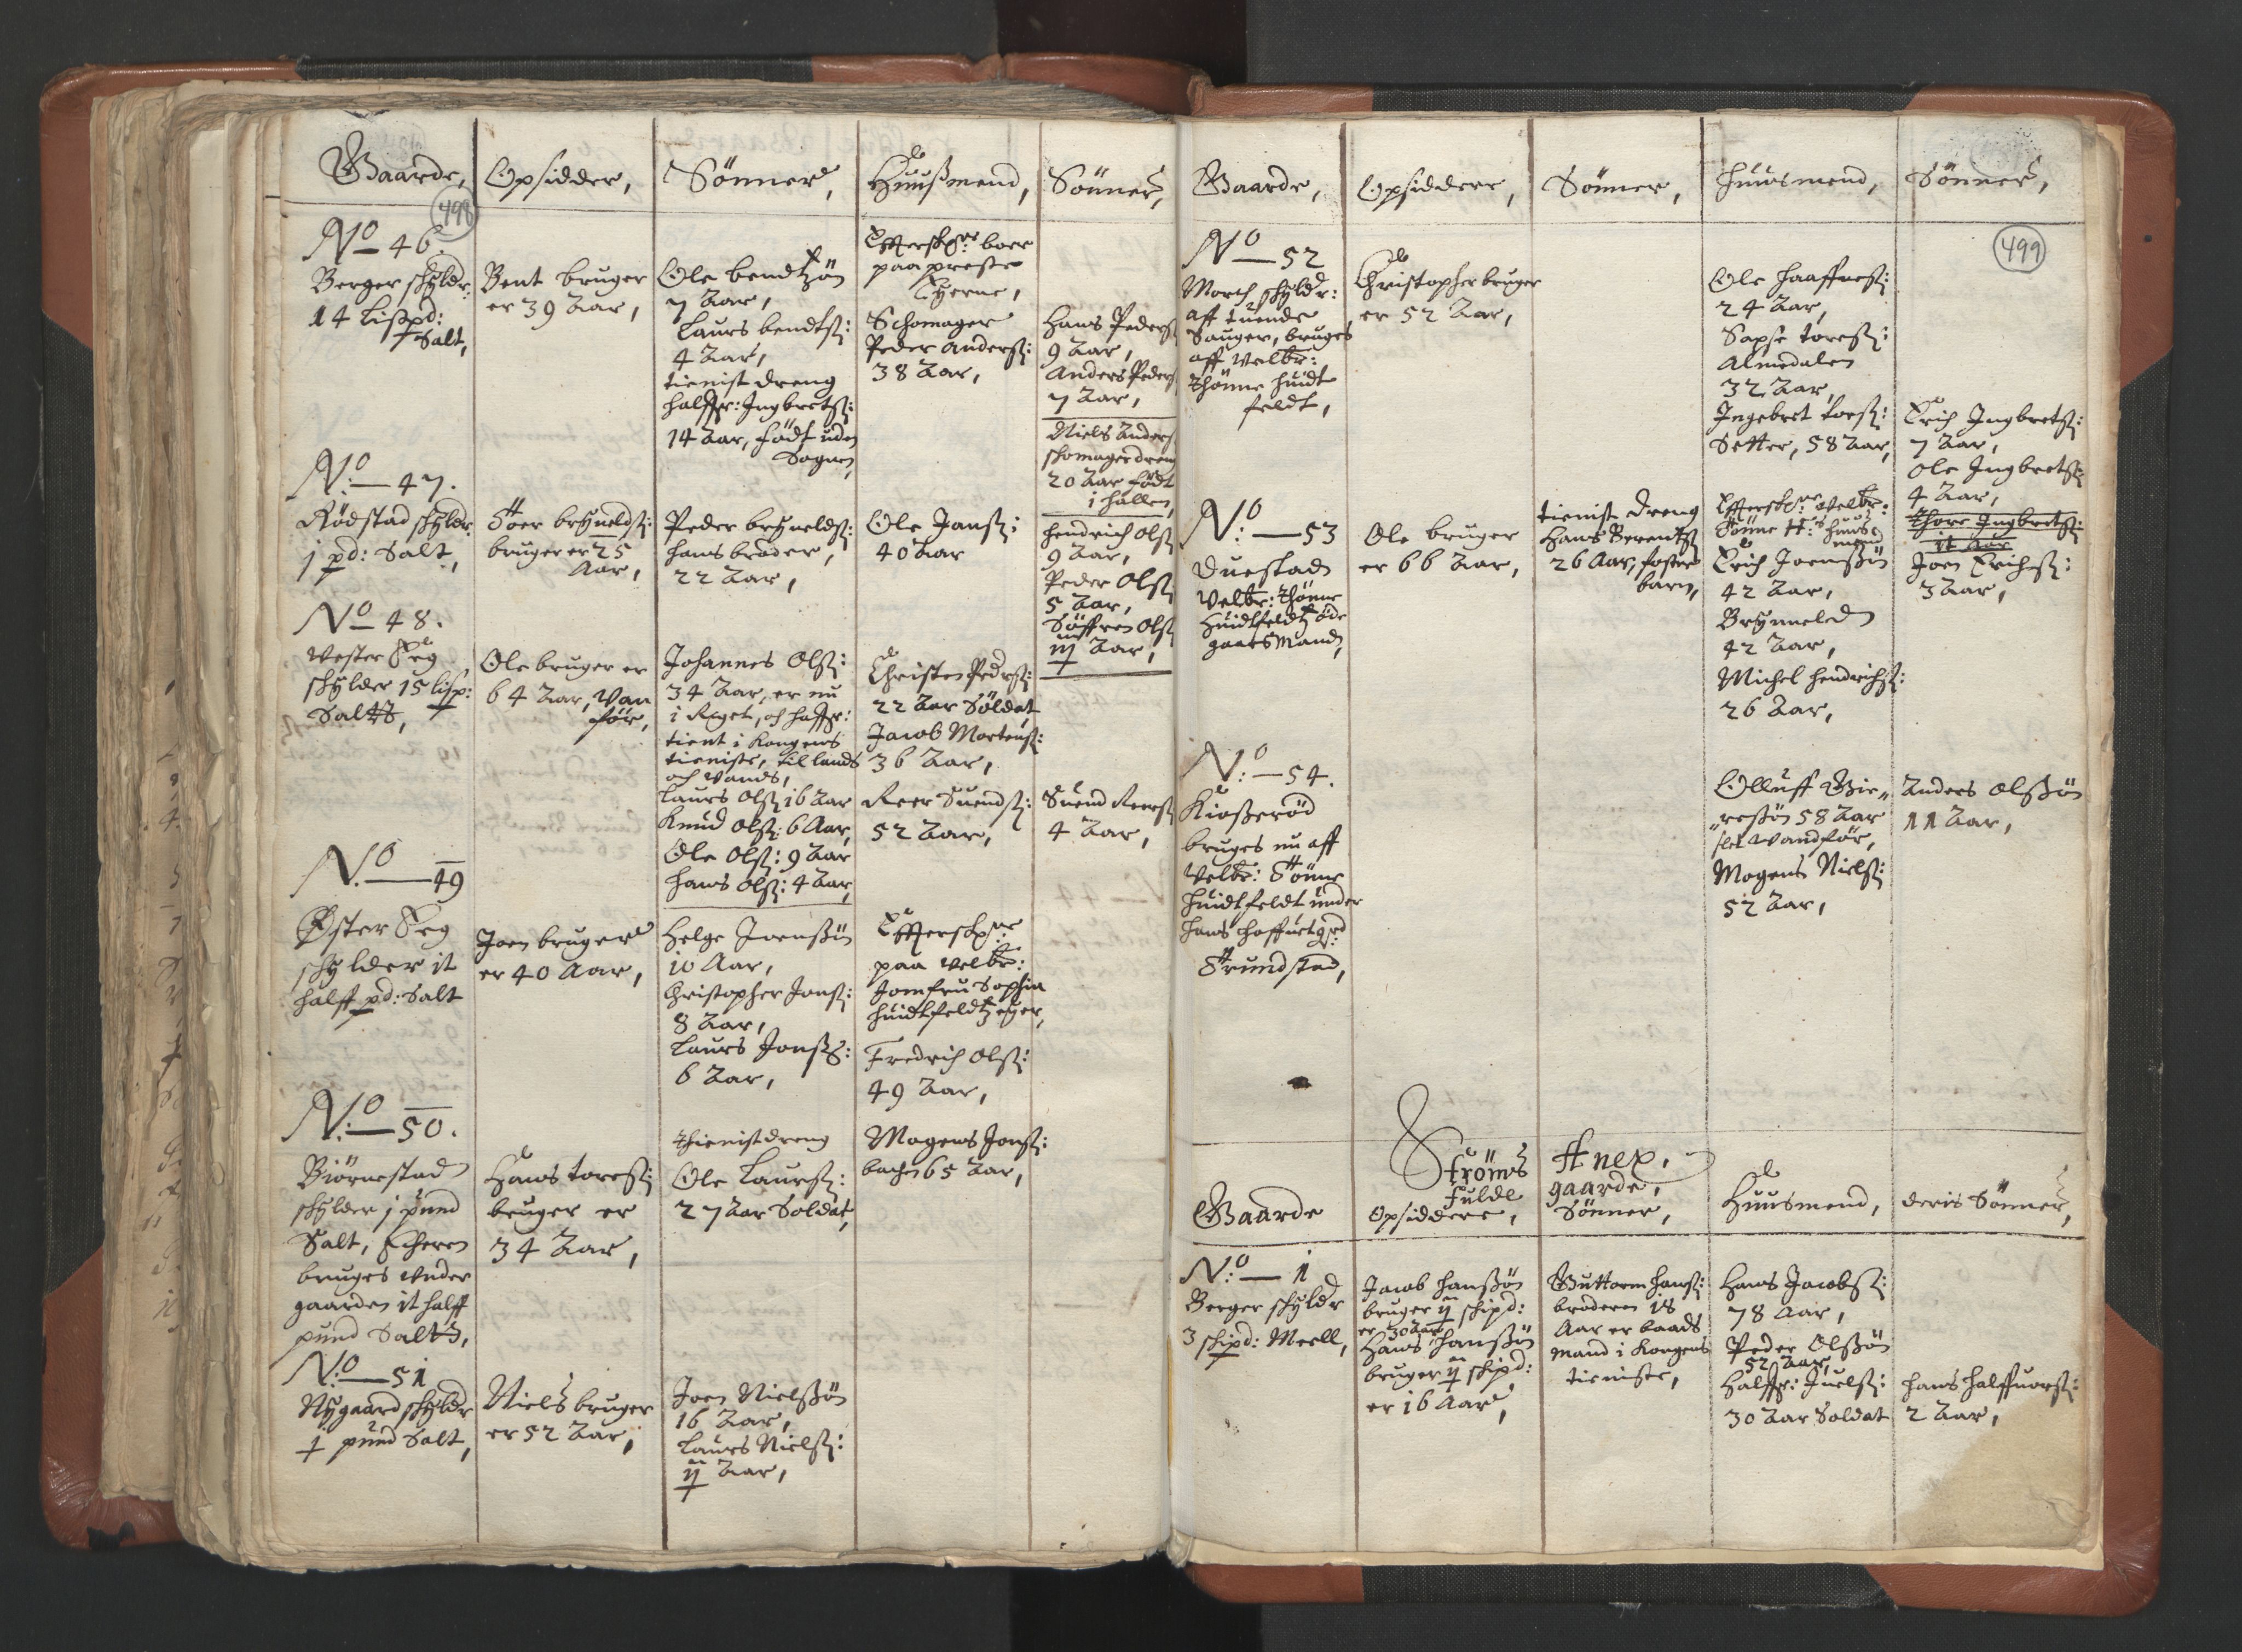 Gaarde,
Opsidder,
Sönner,
Huußmend,
Sönner,
498
No 46.
Berger schylder:
14 Lißpd:
Salt,
Bent bruger
er 39 Aar,
Ole bendtzön
7 Aar,
Laurs bendtß:
4 Aar,
tienist dreng
halffr: Ingbretß:
14 Aar, födt uden
Sognen,
Effterschr:ne boer
paa preste
Eyerne,
Schomager
Peder Anderß:
38 Aar,
Hans Pederß
9 Aar,
Anders Pederß
7 Aar,
Niels Anderß
schomagerdreng
20 Aar födt
i hallen,
No: 47.
Rödstad schylder
j pd: Salt,
Töer bryneldß:
bruger er 25
Aar,
Peder bryneldß:
hans broder,
22 Aar,
Ole Janß:
40 Aar
hendrich Olß
9 Aar,
Peder Olß
5 Aar,
Söffren Olß
iij Aar,
No 48.
Vester Eeg
schylder 15 lisp:
Saltt,
Ole bruger er
64 Aar, Van
för,
Johannes Olß:
34 Aar, er nu
i Reget, och haffr:
tient i Kongens
tieniste, til lands
och vands,
Laurs Olß 16 Aar
Knud Olß: 6 Aar,
Ole Olß: 9 Aar
hans Olß: 4 Aar,
Christen Pedrß:
22 Aar Söldat
Jacob Mortenß:
36 Aar,
Reer Suendß:
52 Aar,
Suend Reerß
4 Aar,
No: 49
Öster Eeg
schylder it
halff pd: Salt
Joen bruger
er 40 Aar,
Helge Joenßön
10 Aar,
Christopher Jonß:
8 Aar,
Laurs Jonß:
6 Aar,
Effterschr:ne
paa velbr:
Jomfru Sophia
huidtfeldtz eger,
Fredrich Olß:
49 Aar,
No: 50.
Biörnestad
schylder j pund
Salt, Echeren
bruges under
gaarden it halff
pund Saltt,
Hans toreß:
bruger er
34 Aar,
thienistdreng
Ole Laurß:
27 Aar Soldat,
Mogens Jonß:
bachen 65 Aar,
No: 51
Nygaard schylder
j pund Salt,
Niels bruger
er 52 Aar,
Joen Nielßön
16 Aar,
Laurs Nielß:
ij Aar,
Gaarde,
Opsiddere,
Sönner,
huusmend,
Sönner,
499
No 52
Morch schylder:
aff tuende
Sauger, bruges
aff velbr:
Thönne huidt
feldt,
Christopher bruger
er 52 Aar,
Ole haaffneß:
24 Aar,
Sapse toreß:
Almedalen
32 Aar,
Ingebret toeß:
Setter, 58 Aar,
Erich Ingbretß:
7 Aar,
ole Ingbretß:
4 Aar,
Thore Ingbretß:
it Aar
No: 53
Duestad
velbr: Thönne
Huidtfeldtz öde
gaards mand,
Ole bruger
er 66 Aar,
tienist dreng
Hans Berentß
26 Aar, foster
barn,
Effterschr:ne velbr:
Tönne H:s huus
mend
Erich Joenßön
42 Aar,
Brynneld
42 Aar,
Michel hendrichß:
26 Aar,
Joen Erichß:
3 Aar,
No: 54.
Kioßeröd
bruges nu aff
velbr: Tönne
huidtfeldt under
hans hoffuetgrd
Trundstad,
Olluff Bie„
„reßön 58 Aar
slet Vandför,
Mogens Nielß:
52 Aar,
Anders Olßön
11 Aar,
Ströms Anex,
Fulde gaarde,
Gaarde
Opsiddere,
Sönner,
Huusmend,
deris Sönner,
No: 1
Berger schylder
3 schipd: Meell,
Jacob hanßön
bruger ij schipd:
er 30 Aar
Hans hanßön
bruger ij schipd:
er 16 Aar,
Guttorm hanß:
broderen 18
Aar er baads
mand i Kongens
tieniste,
Hans Jacobß:
78 Aar,
Peder Olßön
52 Aar,
Halffr: Juelß:
30 Aar Soldat
hans halffuorß:
2 Aar,